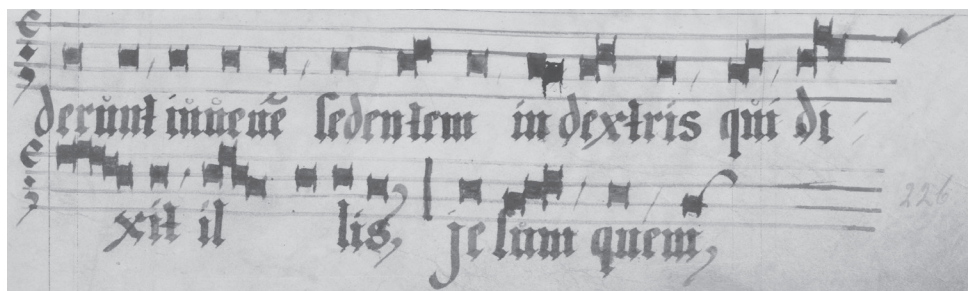 derůnt iůůenē ſedentem in dextris qůi di
xit il lis, jeſům quem,
226